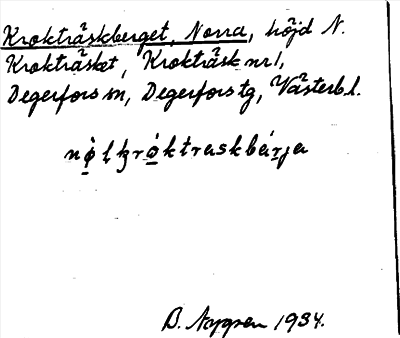 Krokträskberget, Norra, höjd N.
Krokträsket, Krokträsk nr 1,
Degerfors sn, Degerfors tg, Västerb. l.
nǫ̀lkrǫ̀ktraskbárja
B. Nygren 1934.